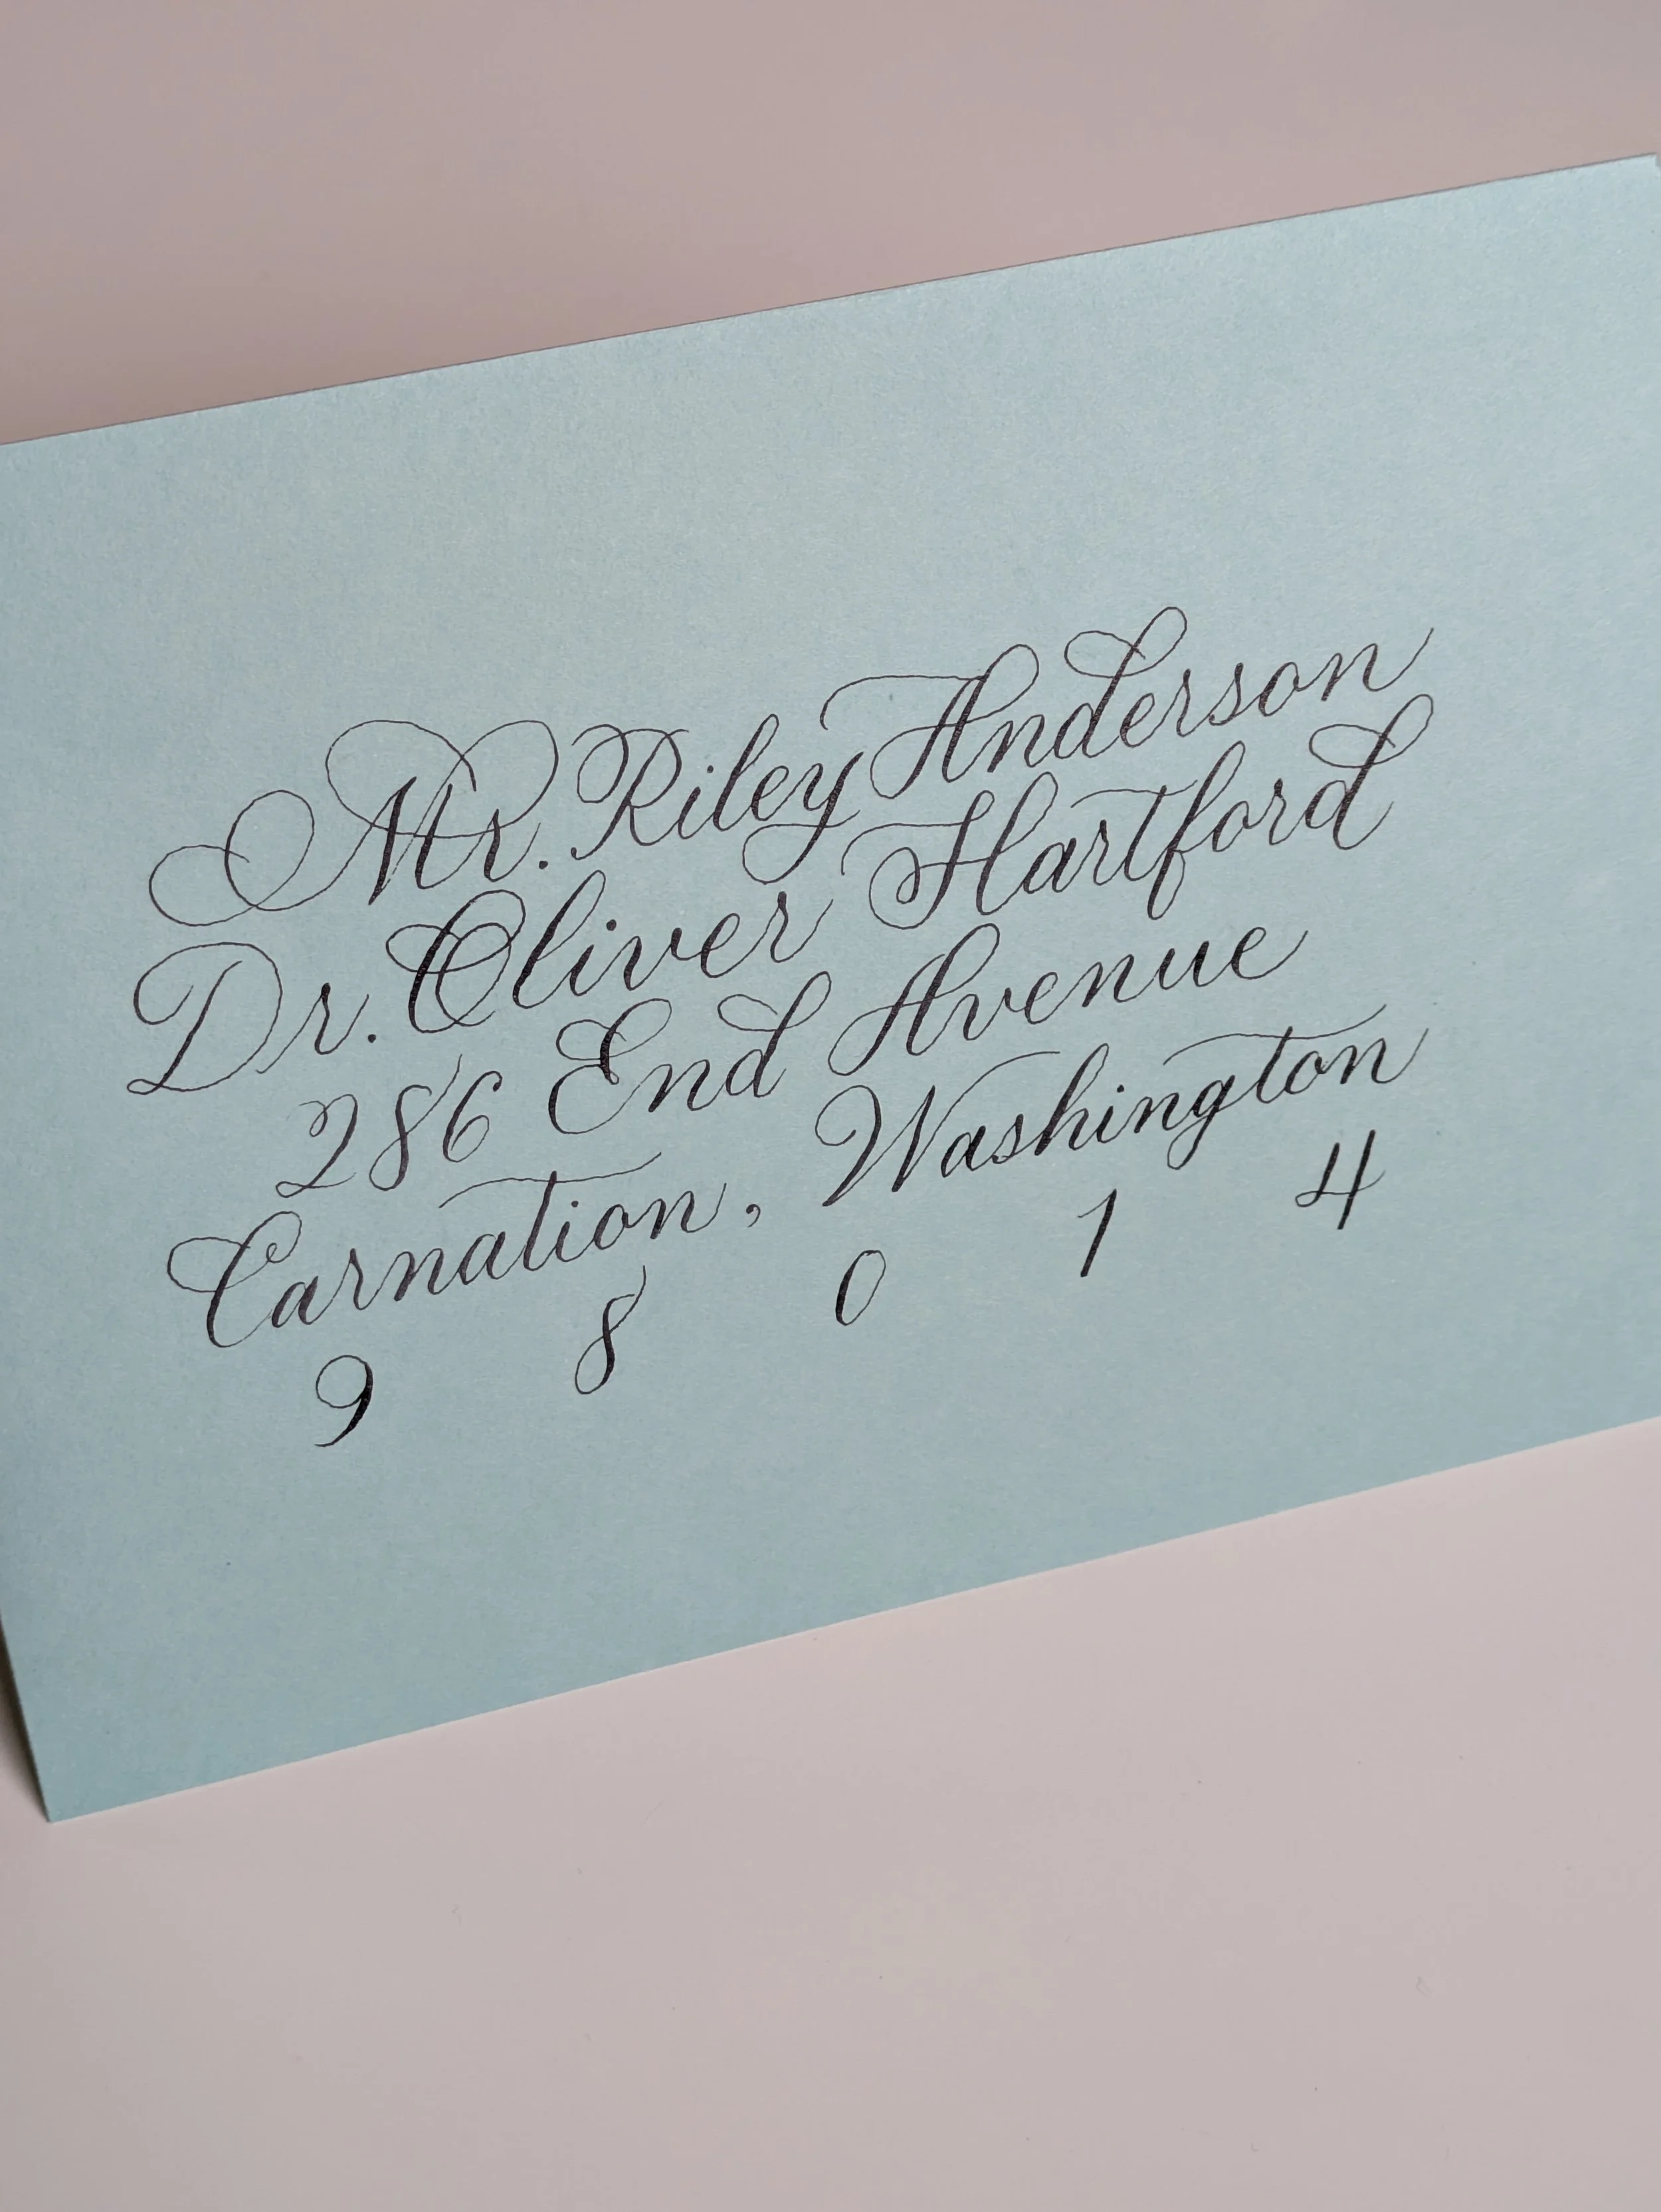 Mr. Riley Anderson
Dr. Oliver Hartford
286 End Avenue
Carnation, Washington
9 8 0 1 4